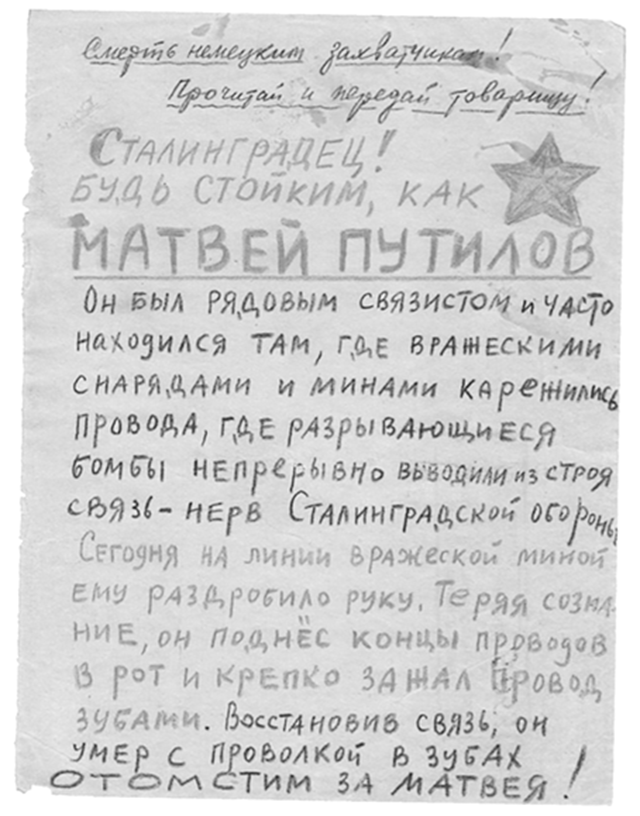 Смерть немецким захватчикам!
Прочитай и передай товарищу!
СТАЛИНГРАДЕЦ!
БУДЬ СТОЙКИМ, КАК
МАТВЕЙ ПУТИЛОВ
ОН БЫЛ РЯДОВЫМ СВЯЗИСТОМ И ЧАСТО
НАХОДИЛСЯ ТАМ, ГДЕ ВРАЖЕСКИМИ
СНАРЯДАМИ И МИНАМИ КАРЕЖИЛИСЬ
ПРОВОДА, ГДЕ РАЗРЫВАЮЩИЕСЯ
БОМБЫ НЕПРЕРЫВНО ВЫВОДИЛИ ИЗ СТРОЯ
СВЯЗЬ – НЕРВ СТАЛИНГРАДСКОЙ ОБОРОНЫ
СЕГОДНЯ НА ЛИНИИ ВРАЖЕСКОЙ МИНОЙ
ЕМУ РАЗДРОБИЛО РУКУ. ТЕРЯЯ СОЗНА-
НИЕ, ОН ПОДНЁС КОНЦЫ ПРОВОДОВ
В РОТ И КРЕПКО ЗАЖАЛ ПРОВОД
ЗУБАМИ. ВОССТАНОВИВ СВЯЗЬ, ОН
УМЕР С ПРОВОЛКОЙ В ЗУБАХ
ОТОМСТИМ ЗА МАТВЕЯ!